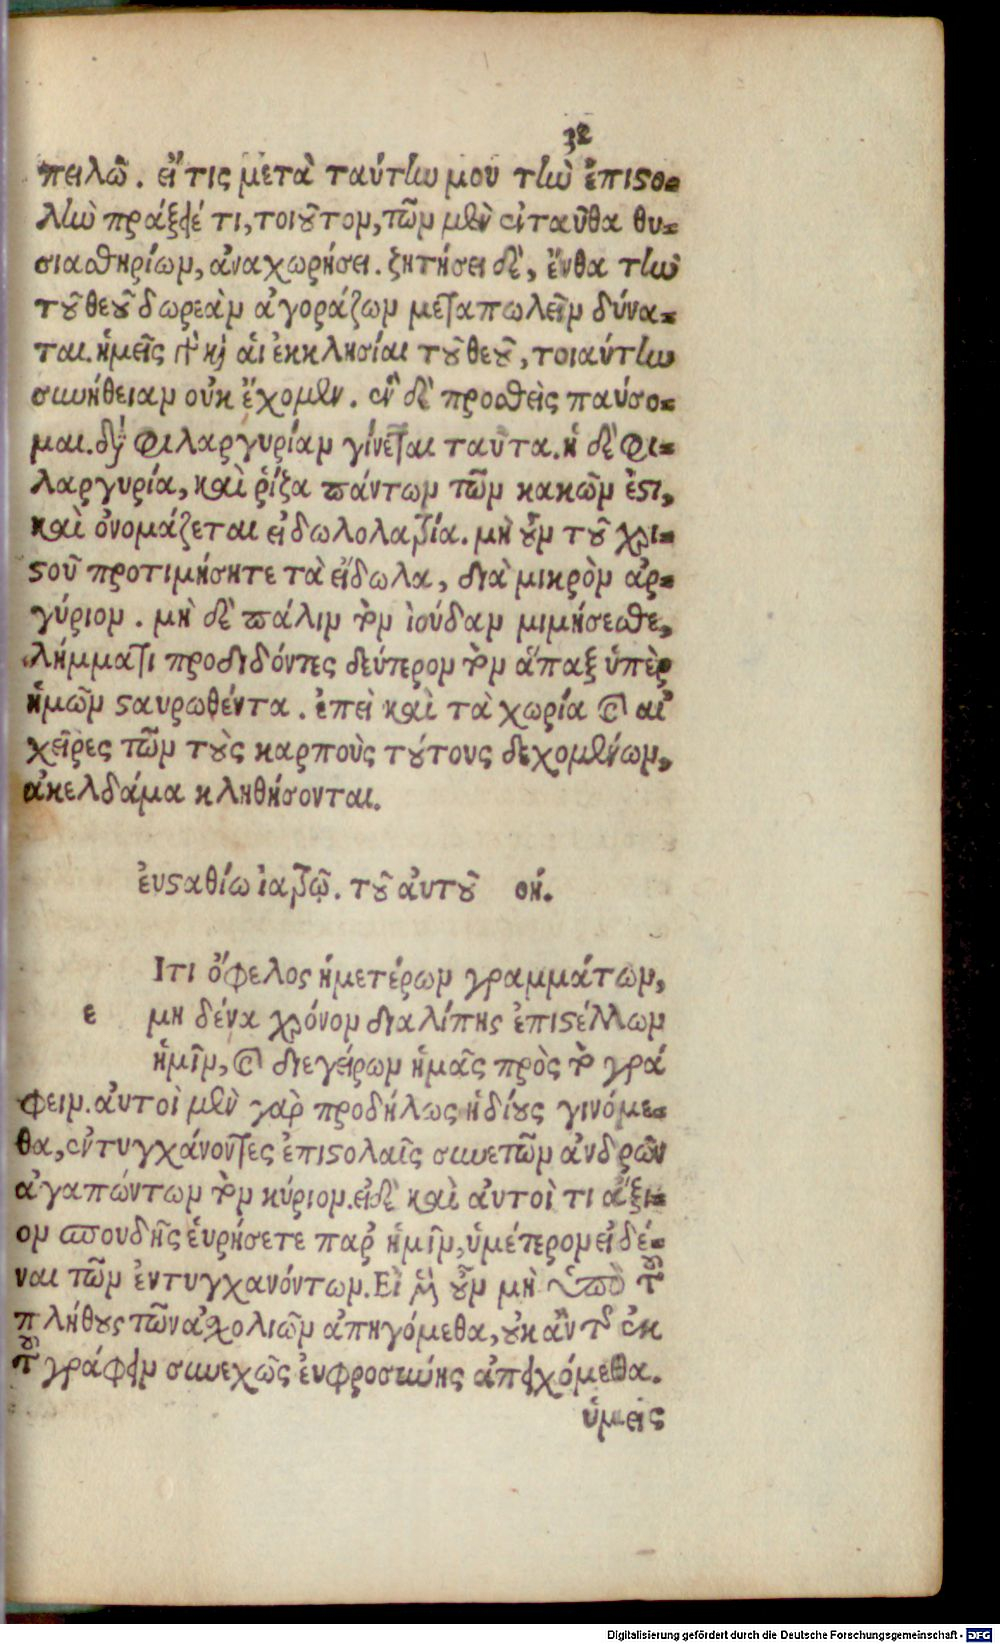 32
πειλῶ. εἴ τις μετὰ ταύτην μου τὴν ἐπιστο-
λὴν πράξειέ τι, τοιοῦτον, τῶν μὲν ἐνταῦθα θυ-
σιαστηρίων, ἀναχωρήσει. ζητήσει δὲ, ἔνθα τὴν
τοῦ θεοῦ δωρεὰν ἀγοράζων μεταπωλεῖν δύνα-
ται. ἡμεῖς γὰρ καὶ ἁι ἐκκλησίαι τοῦ θεοῦ, τοιαύτην
συνήθειαν οὐκ ἔχομεν. ἓν δὲ προσθεὶς παύσο-
μαι. διὰ φιλαργυρίαν γίνεται ταῦτα. ἡ δὲ φι-
λαργυρία, καὶ ῥίζα πάντων τῶν κακῶν ἐστι,
καὶ ὀνομάζεται εἰδωλολατρία. μὴ οὖν τοῦ χρι-
στοῦ προτιμήσητε τὰ εἴδωλα, διὰ μικρὸν ἀρ-
γύριον. μὴ δὲ πάλιν τὸν ἰούδαν μιμήσεσθε,
λήμματι προδιδόντες δεύτερον τὸν ἅπαξ ὑπὲρ
ἡμῶν σταυρωθέντα. ἐπεὶ καὶ τὰ χωρία καὶ αἱ
χεῖρες τῶν τοὺς καρποὺς τούτους δεχομένων,
ἀκελδάμα κληθήσονται.
ἐυσταθίω ἰατρῷ. τοῦ ἀυτοῦ οή.
Ιτι ὄφελος ἡμετέρων γραμμάτων,
ε μηδένα χρόνον διαλίπης ἐπιστέλλων
ἡμῖν, καὶ διεγείρων ἡμᾶς πρὸς τὸ γρά
φειν. ἀυτοὶ μὲν γὰρ προδήλως ἡδίους γινόμε-
θα, ἐντυγχάνοντες ἐπιστολαῖς συνετῶν ἀνδρῶν
ἀγαπώντων τὸν κύριον. εἰ δὲ καὶ ἀυτοὶ τι ἄξι-
ον σπουδῆς ἑυρήσετε παρ' ἡμῖν, ὑμέτερον εἰδέ-
ναι τῶν ἐντυγχανόντων. Εἰ μὲν οὖν μὴ ὑπὸ τοῦ
πλήθους τῶν ἀσχολιῶν ἀπηγόμεθα, οὐκ ἂν τῆς ἐκ
τοῦ γράφειν συνεχῶς ἐυφροσύνης ἀπειχόμεθα.
ὑμεῖς
Digitalisierung gefördert durch die Deutsche Forschungsgemeinschaft - DFG